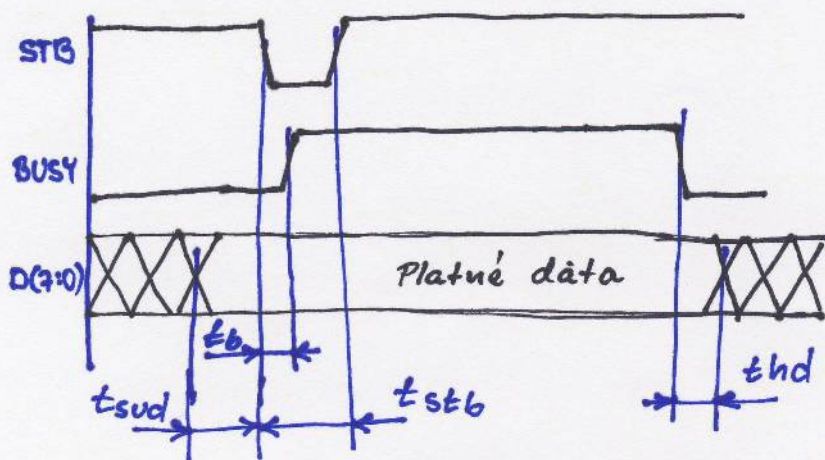 STB
BUSY
D(7:0)
Platné dáta
tb
tsud
tstb
thd